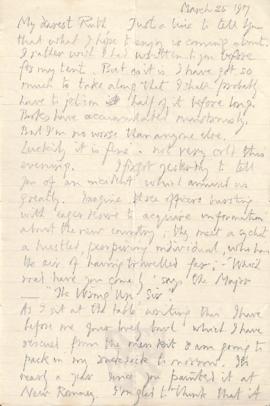 March 26 1917
My dearest Ruth Just a line to tell you
that what I hope to enjoy is coming about.
I rather wish I had written to you before
for my tent. But as it is I have got so
much to take along that I shall probably
have to jettison half of it before long.
Books have accumulated
But I'm no worse than anyone else.
Luckily it is fine & not very cold this
evening. I forgot yesterday to tell
you of an incident which amused us
greatly. Imagine three officers bursting
with eager desire to acquire information
about the new country; they meet a cyclist
a hustled, perspiring individual, who has
the air of having travelled far; - "Which
road have you come?" says the Major
— "The Wrong 'Un, Sir".
As I sit at the table writing this I have
before me your lovely bowl which I have
rescued from the & am going to
pack in my tomorrow. It's
nearly a year since you painted it at
New Romney. I'm glad to think that it